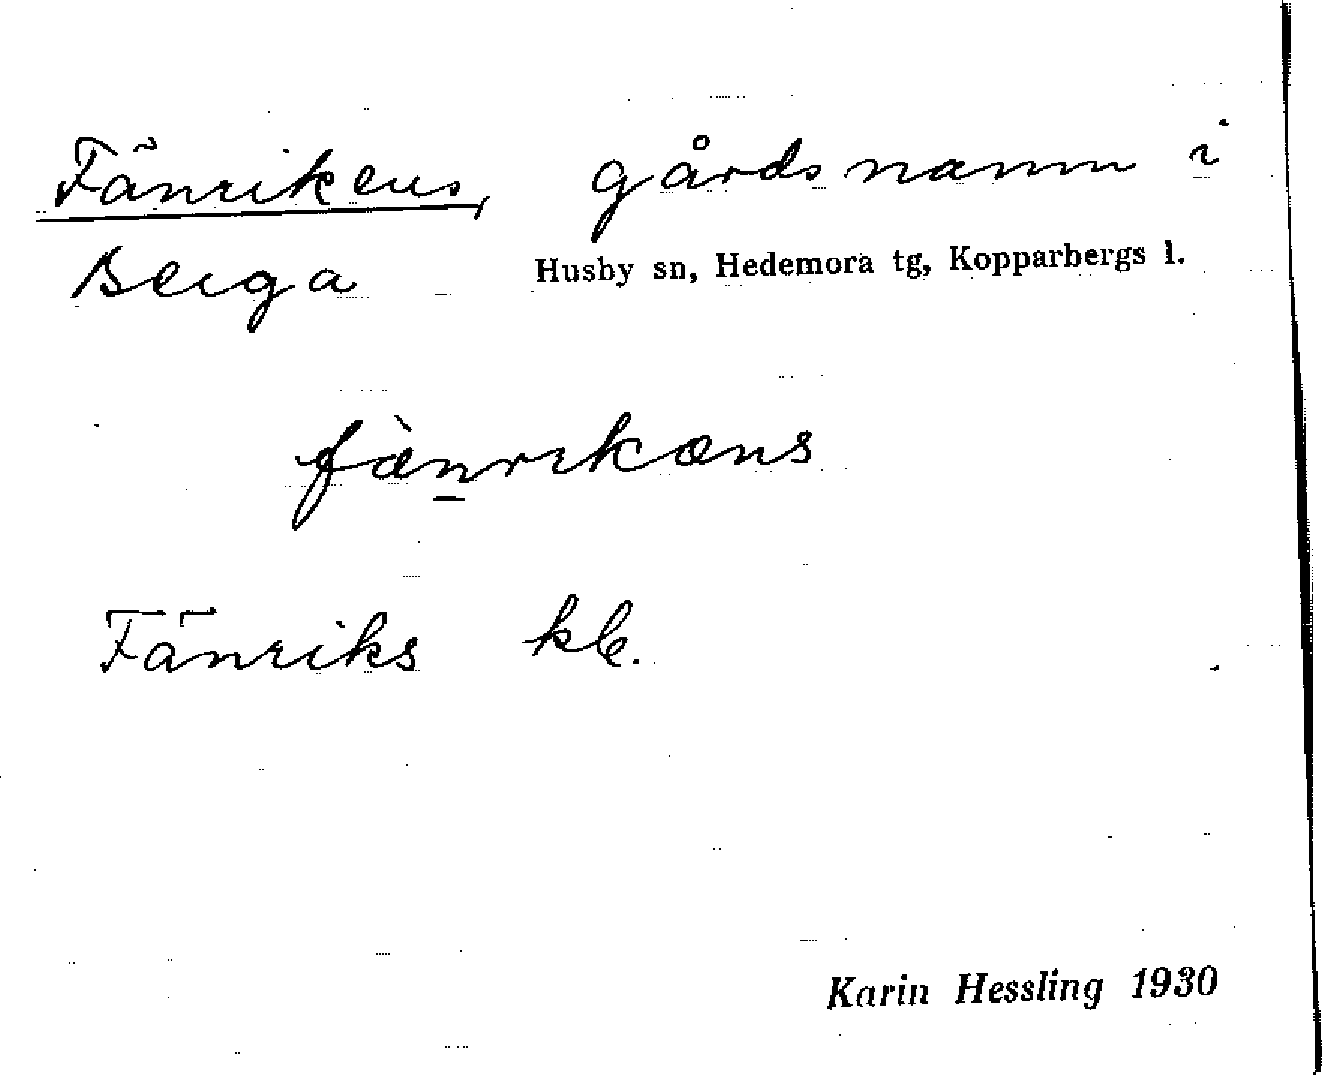 Fänrikens, gårdsnamn i
Berga Husby sn, Hedemora tg, Kopparbergs l.
fæ̀n̲rikæns
Fänriks kb.
Karin Hessling 1930